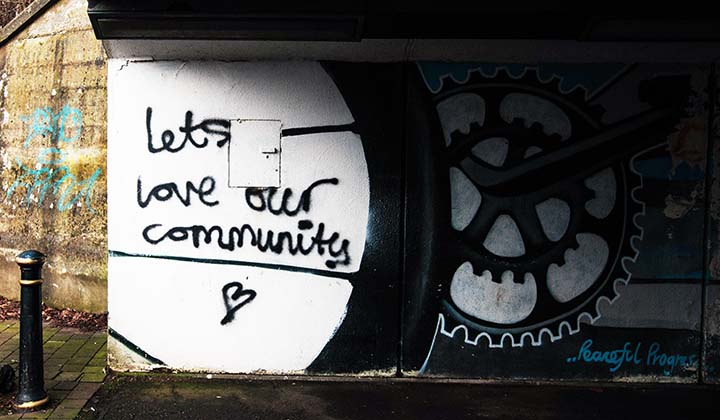 lets
love our
community
..Peaceful Progres